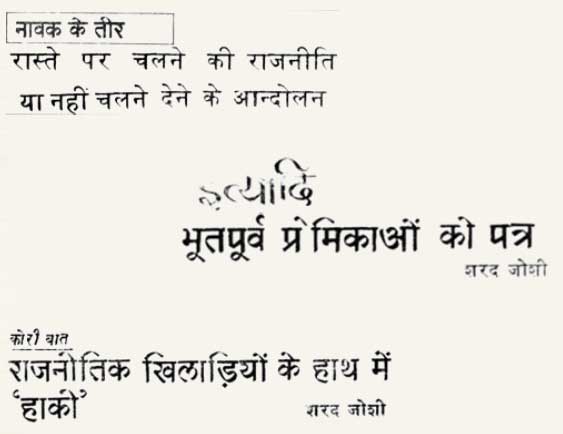 नावक के तीर
रास्ते पर चलने की राजनीति
या नहीं चलने देने के आन्दोलन
इत्यादि
भूतपूर्व प्रेमिकाओं को पत्र
शरद जोशी
कोरी बात
राजनीतिक खिलाड़ियों के हाथ में
'हाकी'
शरद जोशी